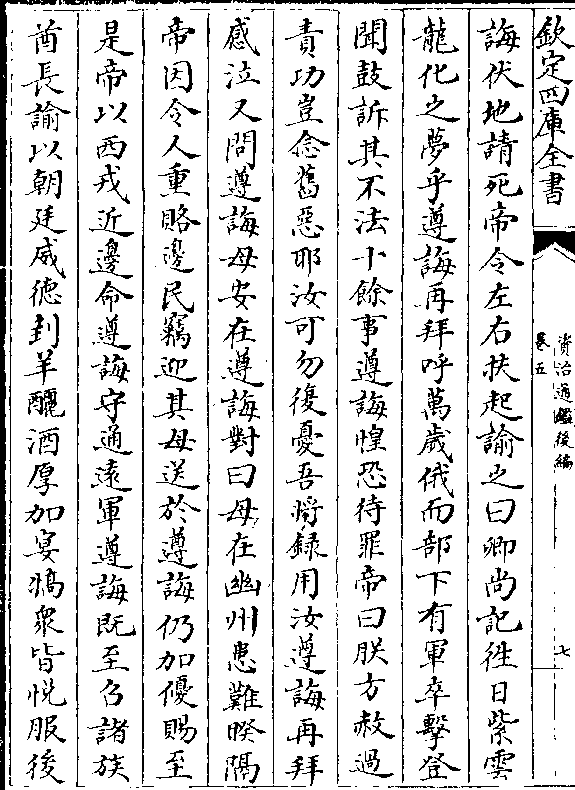 欽定四庫全書
資治通鑑後編
卷五
七
誨伏地請死帝令左右扶起諭之曰卿尚記徃日紫雲
龍化之夢乎遵誨再拜呼萬歲俄而部下有軍卒擊登
聞鼓訴其不法十餘事遵誨惶恐待罪帝曰朕方赦過
責功豈念舊惡耶汝可勿復憂吾將録用汝遵誨再拜
感泣又問遵誨母安在遵誨對曰母在幽州患難暌隔
帝因令人重賂邊民竊迎其母送於遵誨仍加優賜至
是帝以西戎近邊命遵誨守通遠軍遵誨既至召諸族
酋長諭以朝廷威德刲羊釃酒厚加宴犒衆皆悅服後